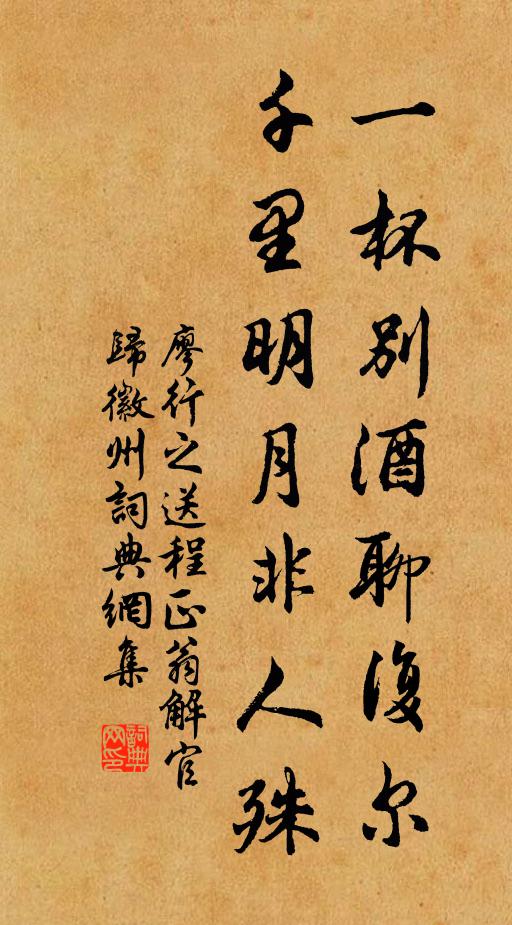 一杯別酒聊復尔
千里明月非人殊
廖行之送程正翁解官
歸徽州詞典網集
詞典
网印